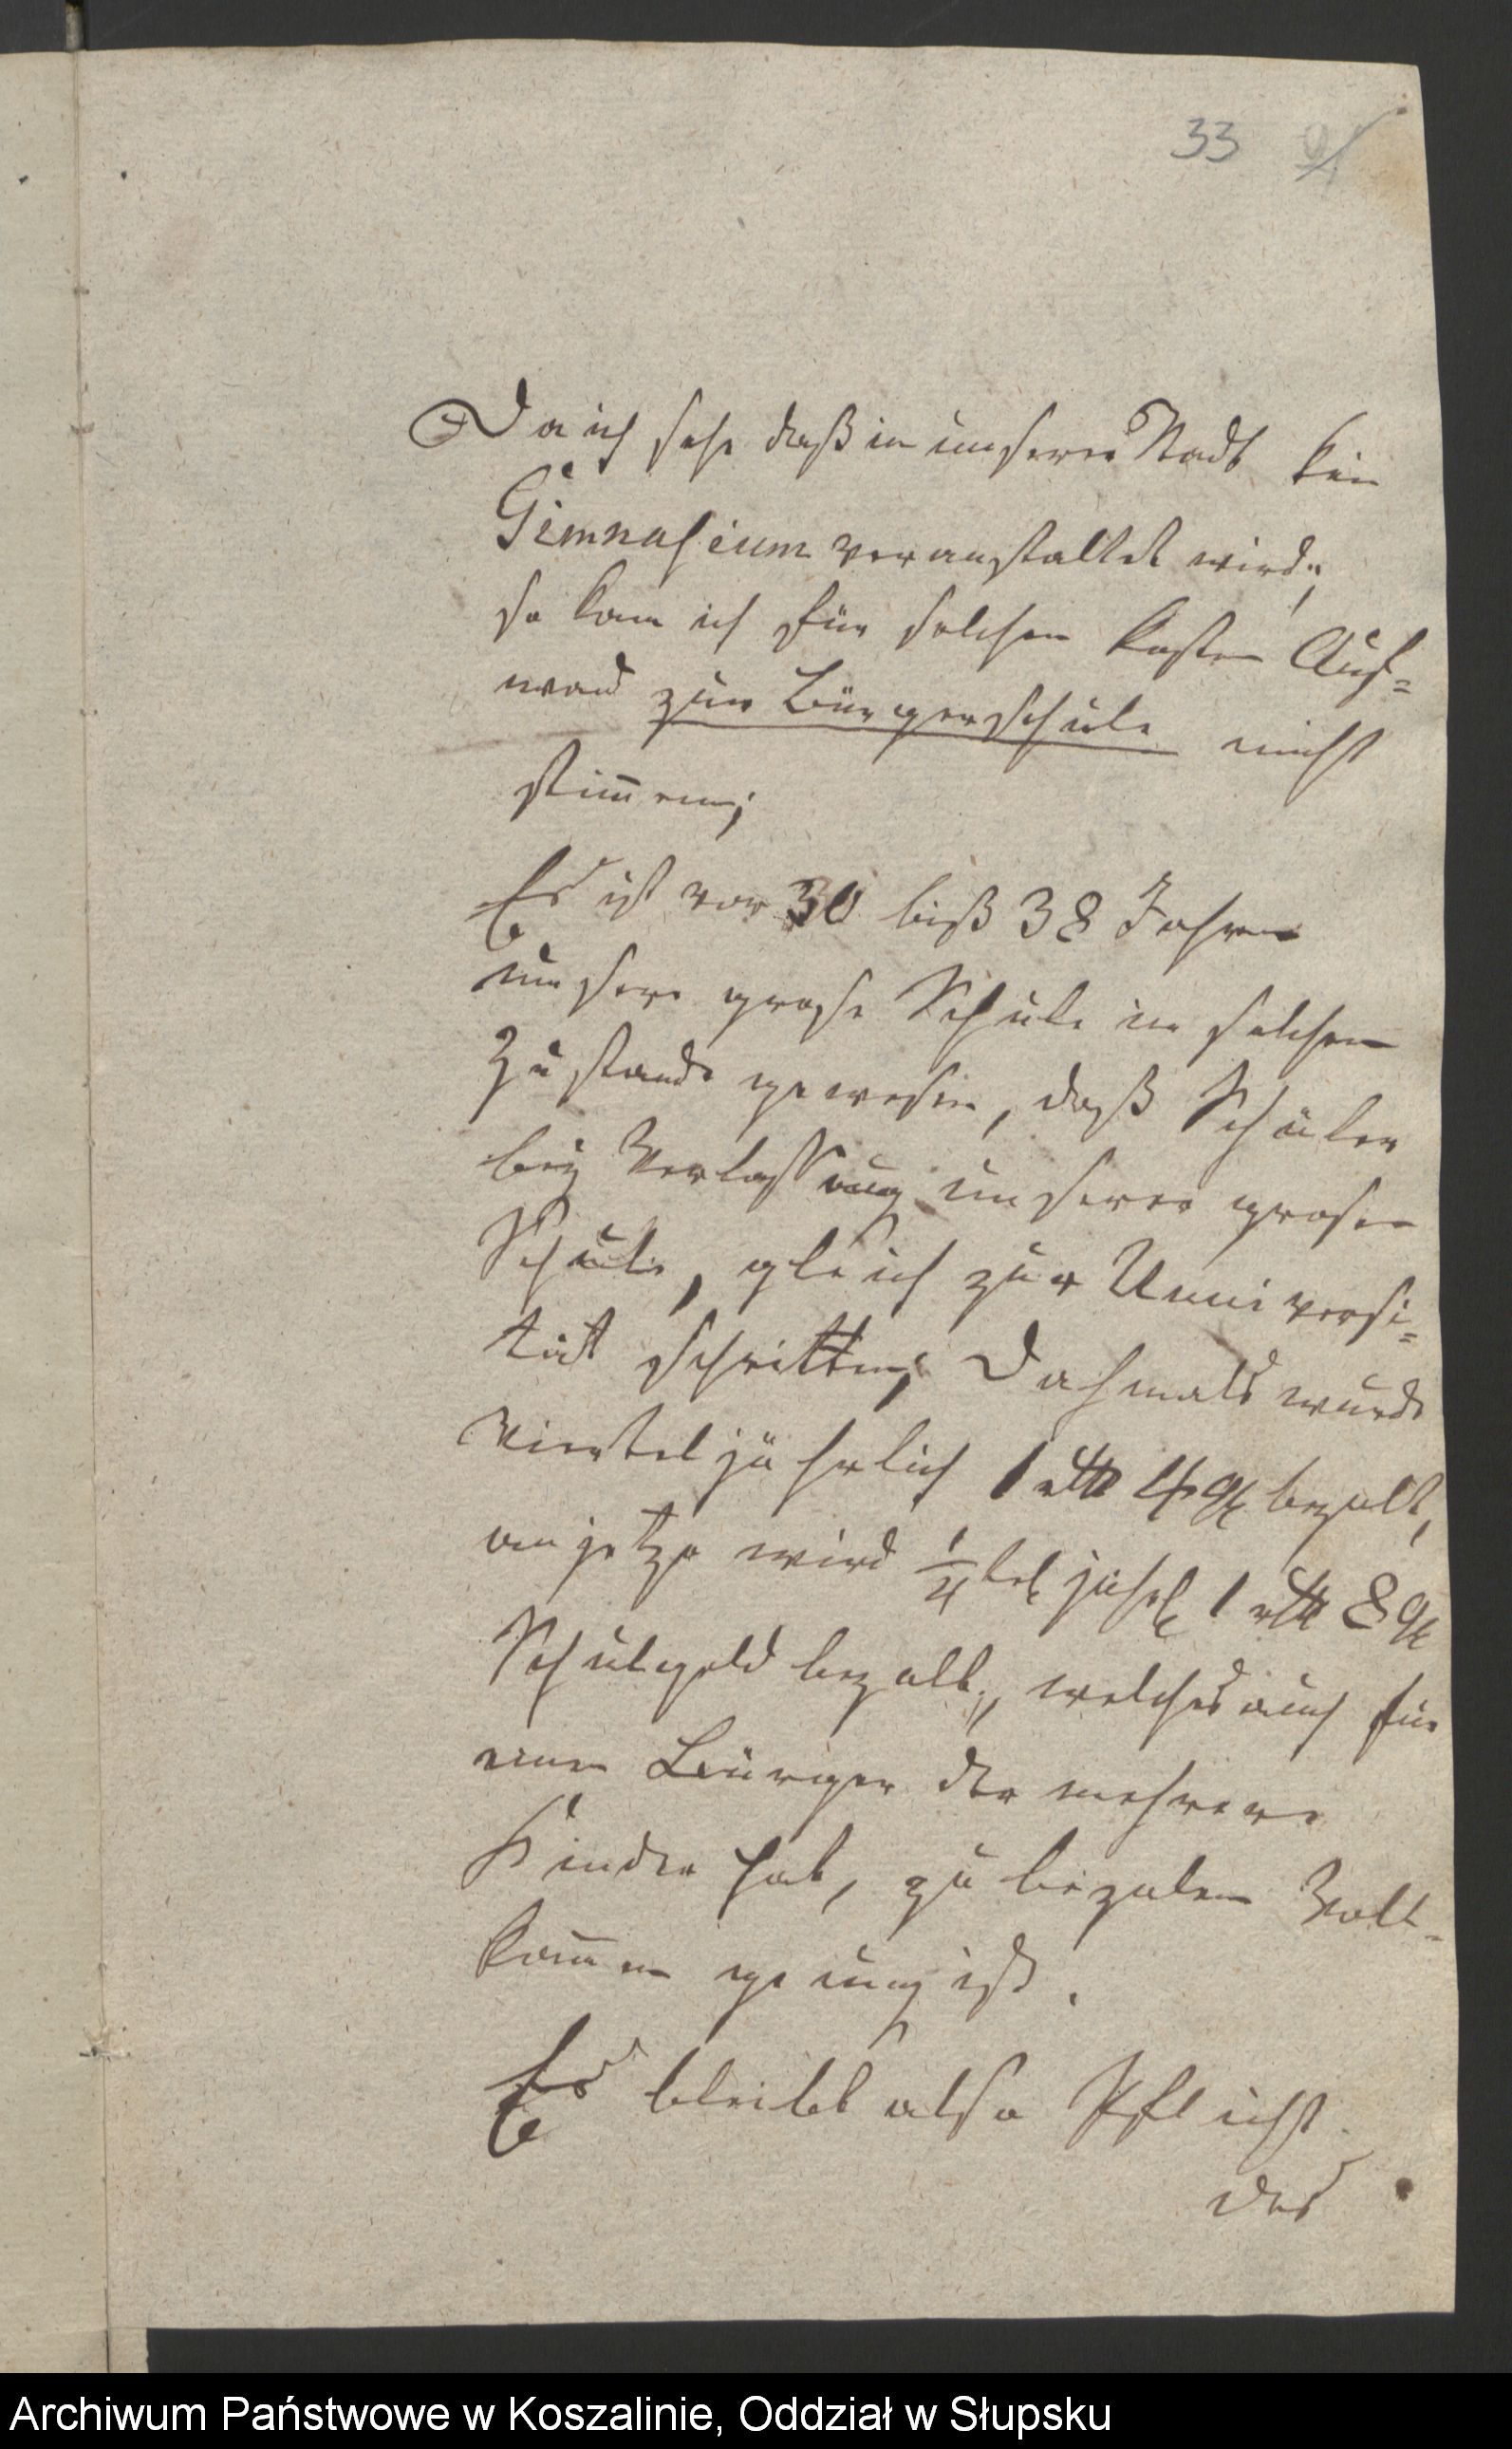 33
Da ich sehe daß in unserer Stadt kein
Gimnasium veranstaltet wird,
so kan ich für solchen kosten Auf=
wand zur Bürgerschule nicht
stim̄en;
Es ist vor 30 biß 38 Jahren
unsere grose Schule in solchen
Zustande gewesen, daß Schüler
bey Verlassung unserer grosen
Schule, gleich zur Universi=
tät schritten; Dahmals wurde
vierteljährlich 1 rtl 4 gl bezalt,
anjetzo wird 1/4tel jährl 1 rtl 8 gl
Schulgeld bezalt, welches auch für
einen Bürger der mehrere
Kinder hat, zu bezalen Voll-
kom̄en genug ist.
Es bleibt also Pflicht
des
Archiwum Państwowe w Koszalinie, Oddział w Słupsku